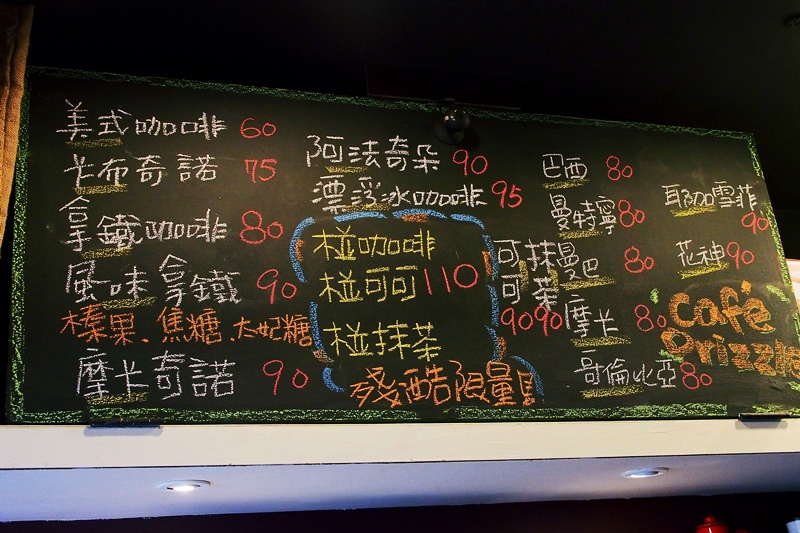 美式咖啡 60
卡布奇諾 75
拿鐵咖啡 80
風味拿鐵 90
榛果、焦糖、太妃糖
摩卡奇諾 90
阿法奇朵 90
漂浮冰咖啡 95
椪咖啡
椪可可 110
椪抹茶
殘酷限量
可可 90
抹茶 90
巴西 80
曼特寧 80
曼巴 80
摩卡 80
哥倫比亞 80
耶加雪菲 90
花神 90
Café